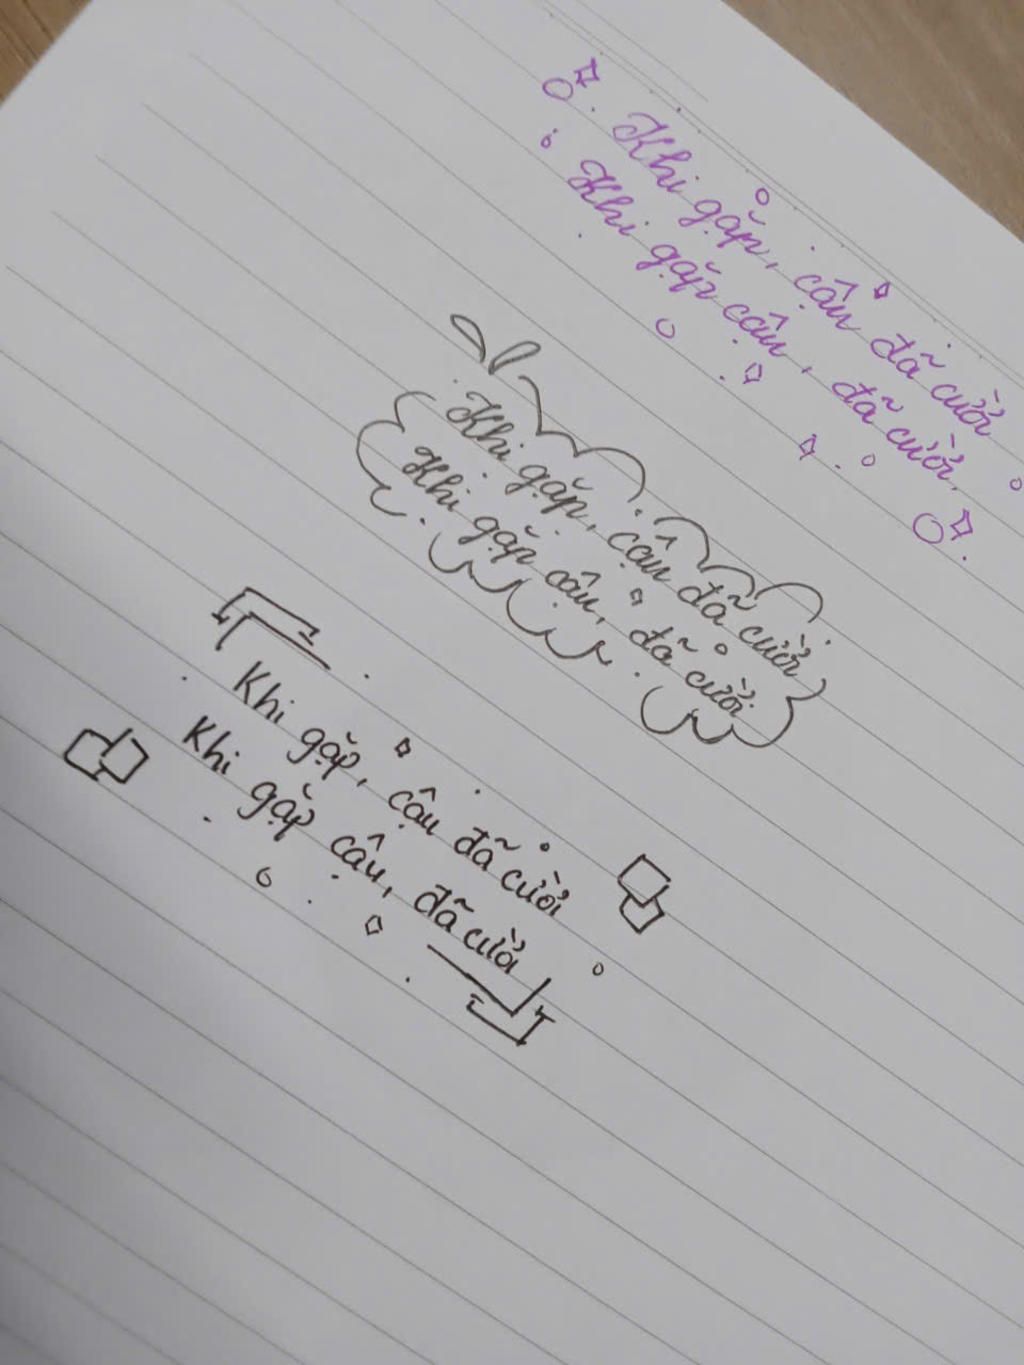 Khi gặp, cậu đã cười
Khi gặp cậu, đã cười.
Khi gặp, cậu đã cười
Khi gặp cậu, đã cười
Khi gặp, cậu đã cười
Khi gặp cậu, đã cười